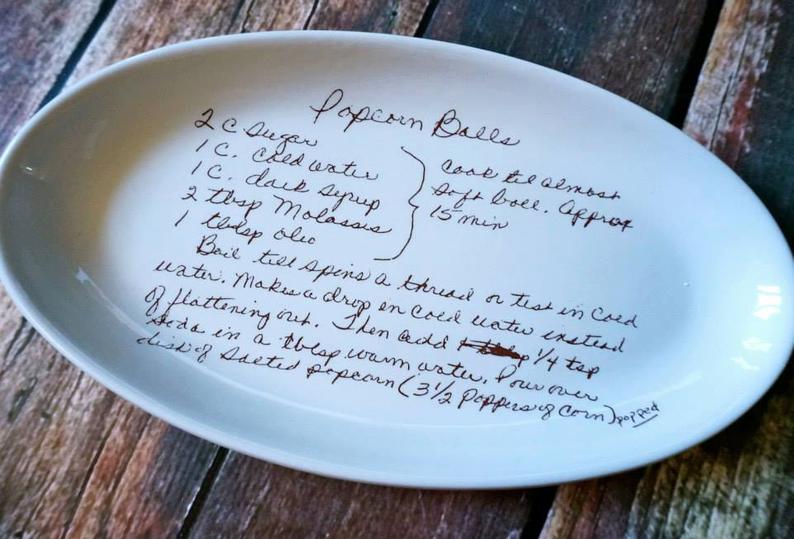 Popcorn Balls
2 c Sugar
1 C. Cold water
1 C. dark syrup
2 tbsp Molasses
1 tblsp oleo
Cook til almost
soft ball. Approx
15 min
Boil till spins a thread or test in cold
water. Makes a drop in cold water instead
of flattening out. Then add 1/4 tsp
soda in a tblsp warm water. Pour over
dish of Salted popcorn (3 1/2 Poppers of Corn) popped